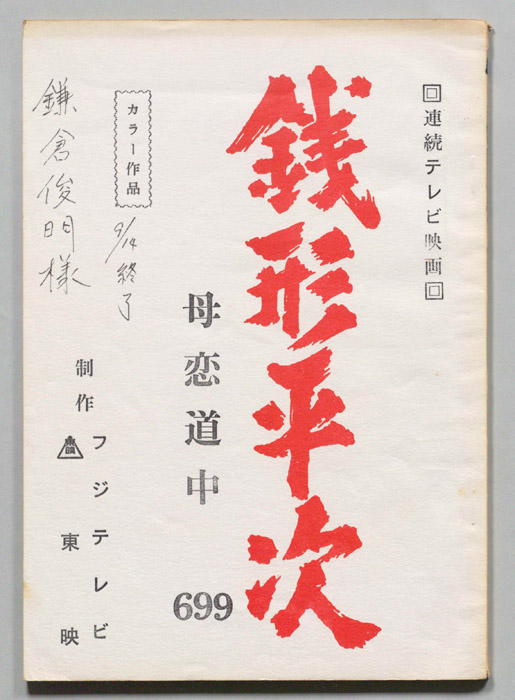 回連続テレビ映画回
銭形平次
母恋道中
699
カラー作品
9/14終了
鎌倉俊明様
制作
フジテレビ
東映